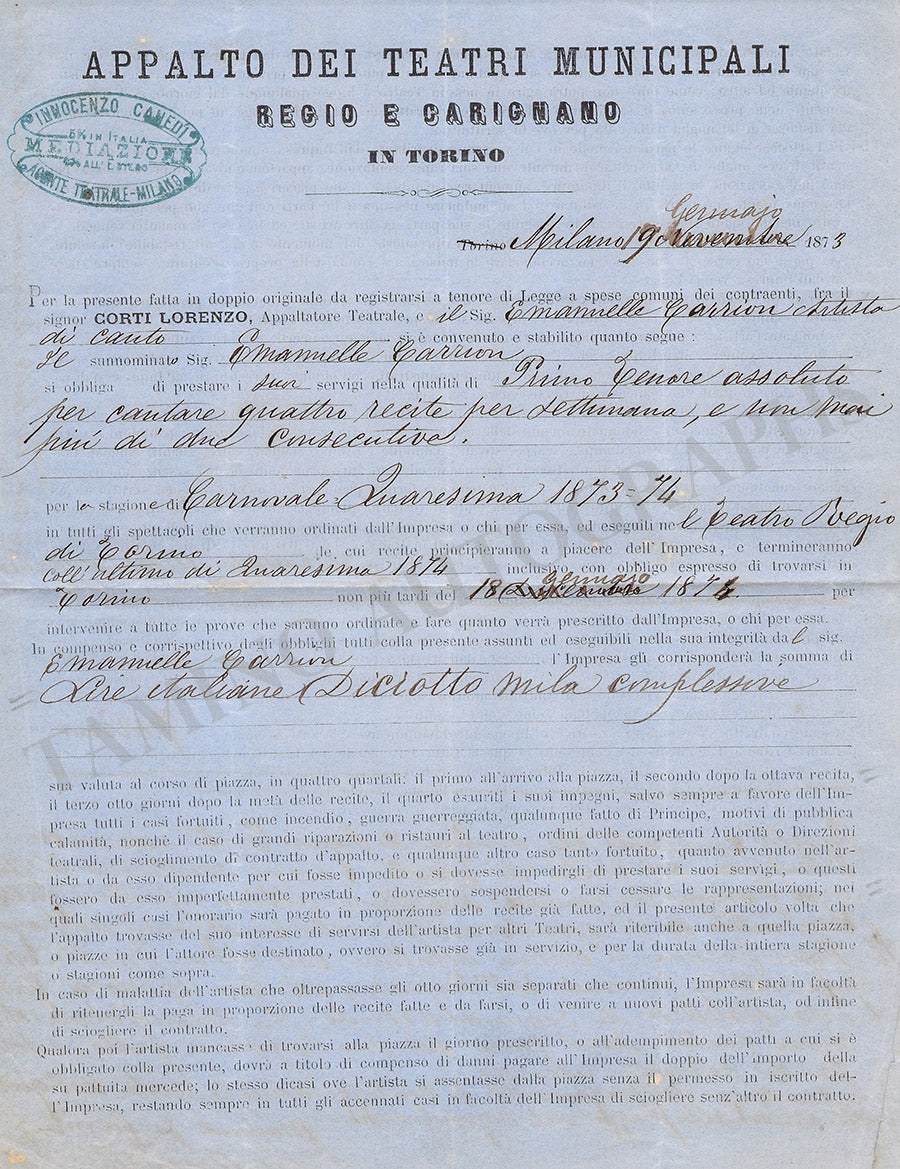 APPALTO DEI TEATRI MUNICIPALI
REGIO E CARIGNANO
IN TORINO
INNOCENZO CANEDI
5% IN ITALIA
MEDIAZIONE
ALL'ESTERO
AGENTE TEATRALE-MILANO
Gennajo
Torino Milano 19 Novembre 1873
Per la presente fatta in doppio originale da registrarsi a tenore di Legge a spese comuni dei contraenti, fra il
signor CORTI LORENZO, Appaltatore Teatrale, e il Sig. Emannelle Carrion Artista
di canto si è convenuto e stabilito quanto segue :
Il sunnominato Sig. Emannelle Carrion
si obbliga di prestare i suoi servigi nella qualità di Primo Tenore assoluto
per cantare quattro recite per settimana, e non mai
più di due consecutive.
per la stagione di Carnovale-Quaresima 1873=74
in tutti gli spettacoli che verranno ordinati dall'Impresa o chi per essa, ed eseguiti nel Teatro Regio
di Torino le cui recite principieranno a piacere dell'Impresa, e termineranno
coll'ultimo di Quaresima 1874 inclusivo, con obbligo espresso di trovarsi in
gennajo
Torino non più tardi del 18 Dicembre 1874 per
intervenire a tutte le prove che saranno ordinate e fare quanto verrà prescritto dall'Impresa, o chi per essa.
In compenso e corrispettivo degli obblighi tutti colla presente assunti ed eseguibili nella sua integrità dal sig.
Emannelle Carrion l'Impresa gli corrisponderà la somma di
Lire italiane Diciotto mila complessive
sua valuta al corso di piazza, in quattro quartali: il primo all'arrivo alla piazza, il secondo dopo la ottava recita,
il terzo otto giorni dopo la metà delle recite, il quarto esauriti i suoi impegni, salvo sempre a favore dell'Im-
presa tutti i casi fortuiti, come incendio, guerra guerreggiata, qualunque fatto di Principe, motivi di pubblica
calamità, nonchè il caso di grandi riparazioni o ristauri al teatro, ordini delle competenti Autorità o Direzioni
teatrali, di scioglimento di contratto d'appalto, e qualunque altro caso tanto fortuito, quanto avvenuto nell'ar-
tista o da esso dipendente per cui fosse impedito o si dovesse impedirgli di prestare i suoi servigi, o questi
fossero da esso imperfettamente prestati, o dovessero sospendersi o farsi cessare le rappresentazioni; nei
quali singoli casi l'onorario sarà pagato in proporzione delle recite già fatte, ed il presente articolo volta che
l'appalto trovasse del suo interesse di servirsi dell'artista per altri Teatri, sarà riteribile anche a quella piazza,
o piazze in cui l'attore fosse destinato, ovvero si trovasse già in servizio, e per la durata della intiera stagione
o stagioni come sopra.
In caso di malattia dell'artista che oltrepassasse gli otto giorni sia separati che continui, l'Impresa sarà in facoltà
di ritenergli la paga in proporzione delle recite fatte e da farsi, o di venire a nuovi patti coll'artista, od infine
di sciogliere il contratto.
Qualora poi l'artista mancasse di trovarsi alla piazza il giorno prescritto, o all'adempimento dei patti a cui si è
obbligato colla presente, dovrà a titolo di compenso di danni pagare all'Impresa il doppio dell'importo della
su pattuita mercede; lo stesso dicasi ove l'artista si assentasse dalla piazza senza il permesso in iscritto del-
l'Impresa, restando sempre in tutti gli accennati casi in facoltà dell'Impresa di sciogliere senz'altro il contratto.
TAMINO AUTOGRAPHS